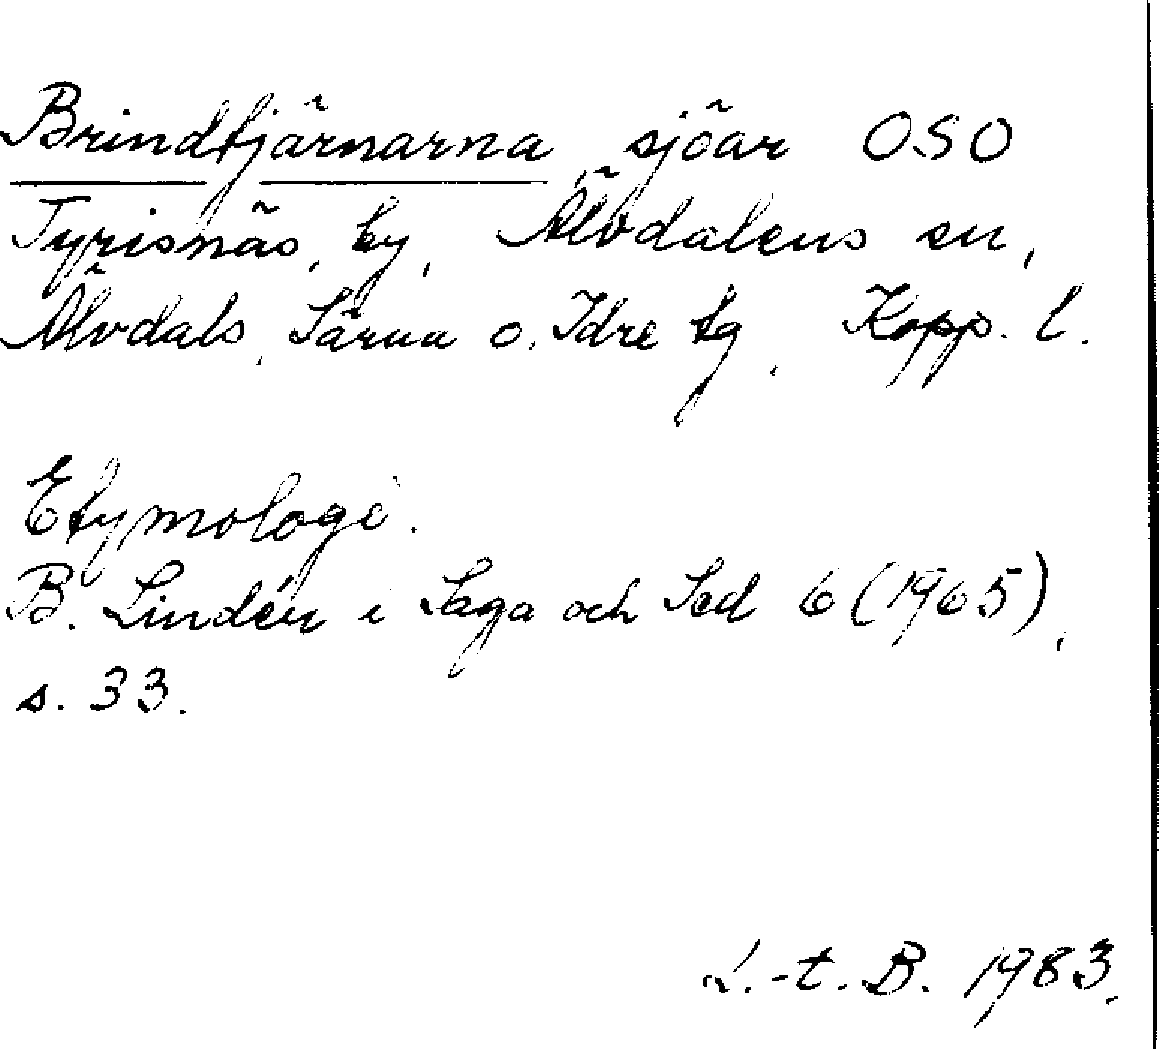 Brindtjärnarna, sjöar OSO
Tyrisnäs, by, Älvdalens sn,
Älvdals, Särna o. Idre tg, Kopp. l.
Etymologi.
B. Lindén i Saga och Sed 6 (1965),
s. 33.
L.-t. B. 1983.